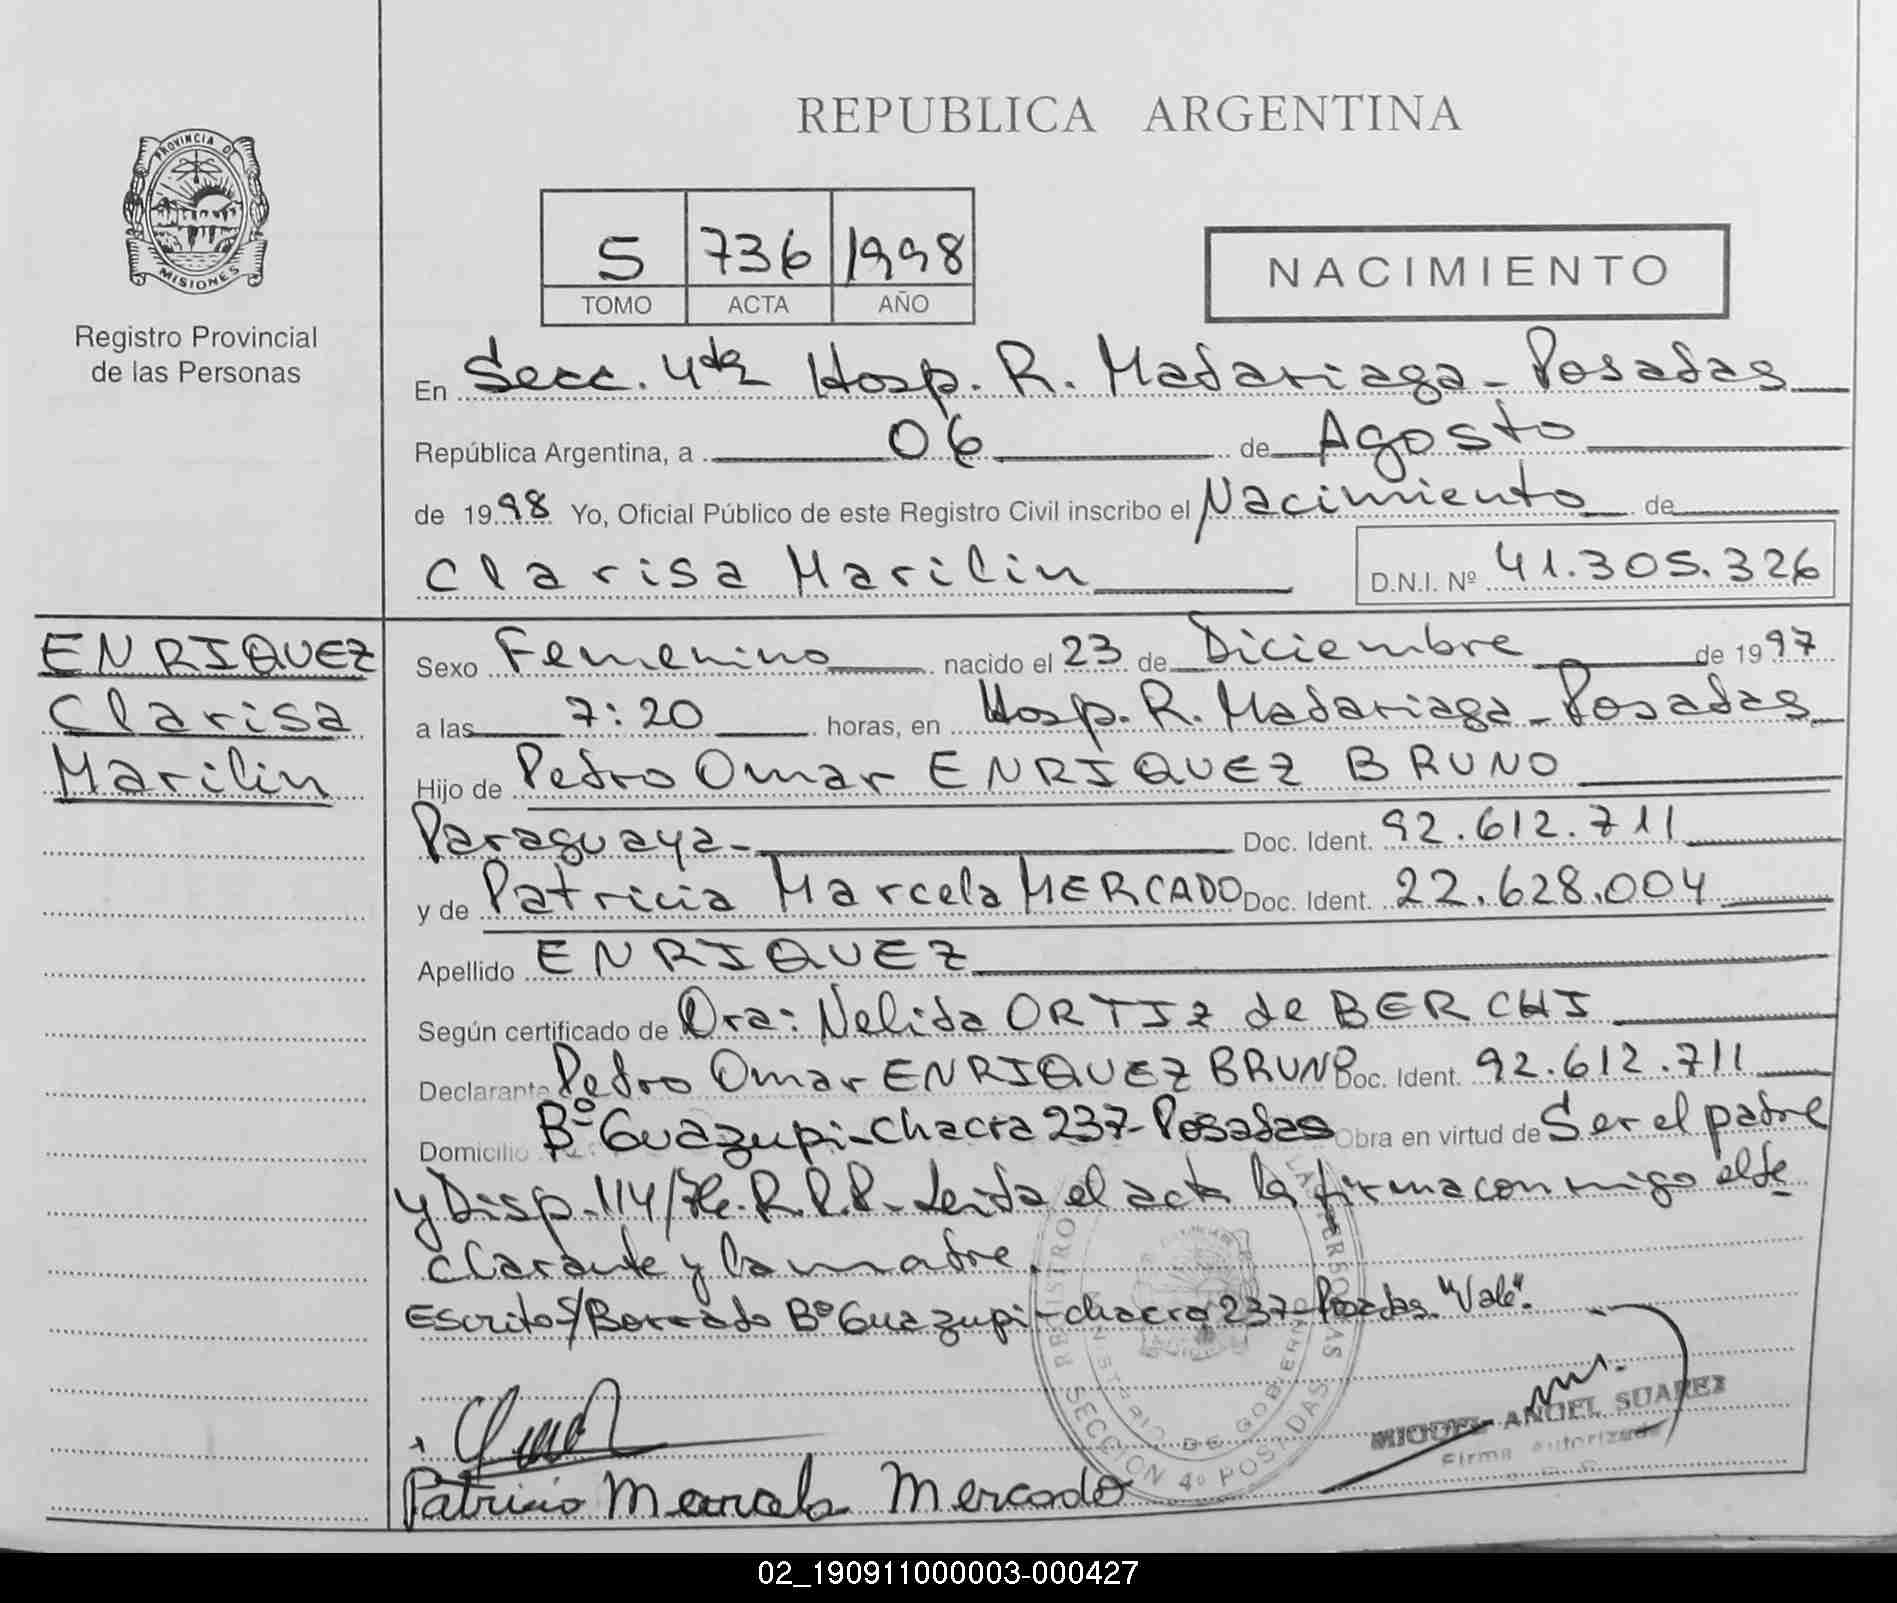 REPUBLICA ARGENTINA
PROVINCIA DE
MISIONES
Registro Provincial
de las Personas
5 736 1998
TOMO ACTA AÑO
NACIMIENTO
En Secc. 4ta Hosp. R. Madariaga - Posadas
República Argentina, a 06 de Agosto
de 1998 Yo, Oficial Público de este Registro Civil inscribo el Nacimiento de
Clarisa Marilin D.N.I. Nº 41.305.326
ENRIQUEZ
Clarisa
Marilin
Sexo Femenino nacido el 23 de Diciembre de 1997
a las 7:20 horas, en Hosp. R. Madariaga - Posadas
Hijo de Pedro Omar ENRIQUEZ BRUNO
Paraguaya - Doc. Ident. 92.612.711
y de Patricia Marcela MERCADO Doc. Ident. 22.628.004
Apellido ENRIQUEZ
Según certificado de Dra: Nelida ORTIZ de BERCHI
Declarante Pedro Omar ENRIQUEZ BRUNO Doc. Ident. 92.612.711
Domicilio Bº Guazupi - Chacra 237 - Posadas Obra en virtud de Ser el padre
y Disp. 114/76. R.P.P. - Leida el acta la firma conmigo el de
clarante y la madre.
Escrito S/Borrado Bº Guazupi - chacra 237 - Posadas "Vale".
REGISTRO LAS PERSONAS
MINISTERIO DE GOBIERNO
SECCION 4º POSADAS
MIGUEL ANGEL SUAREZ
Firma Autorizada
Patricia Marcela Mercado
02_190911000003-000427